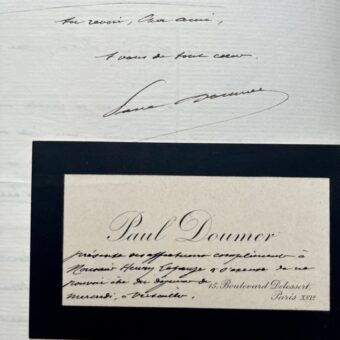 Au revoir, Cher ami,
à vous de tout cœur.
Paul Doumer
Paul Doumer
présente ses affectueux compliments à
Monsieur Henry Lapauze et s'excuse de ne
pouvoir être du déjeuner de
15, Boulevard Delessert,
mercredi, à Versailles.
Paris XVIe